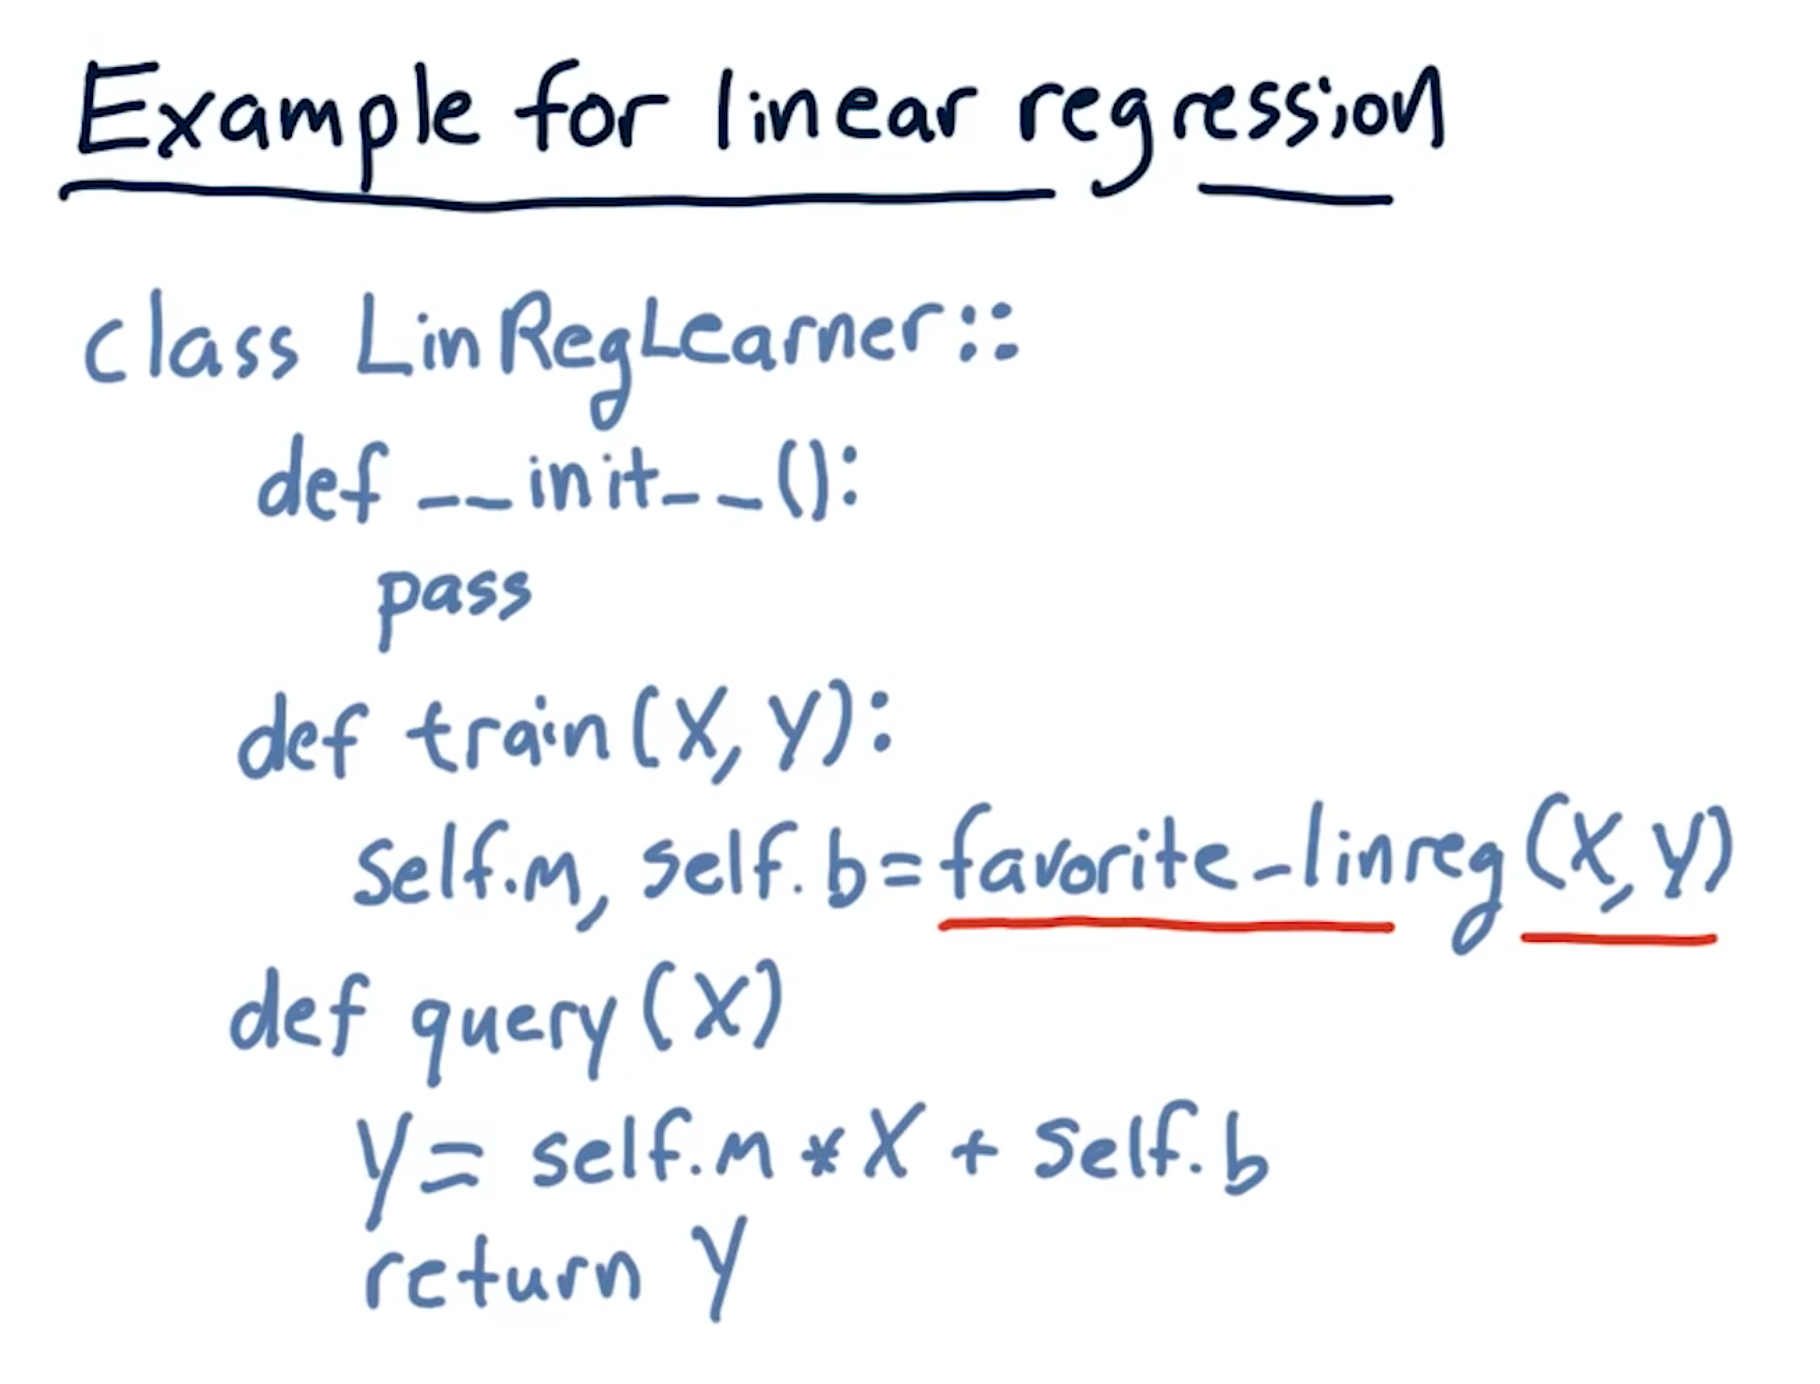 Example for linear regression
class LinRegLearner::
def __init__():
pass
def train(X, Y):
self.m, self.b=favorite_linreg(X, Y)
def query(X)
Y= self.m * X + self.b
return Y